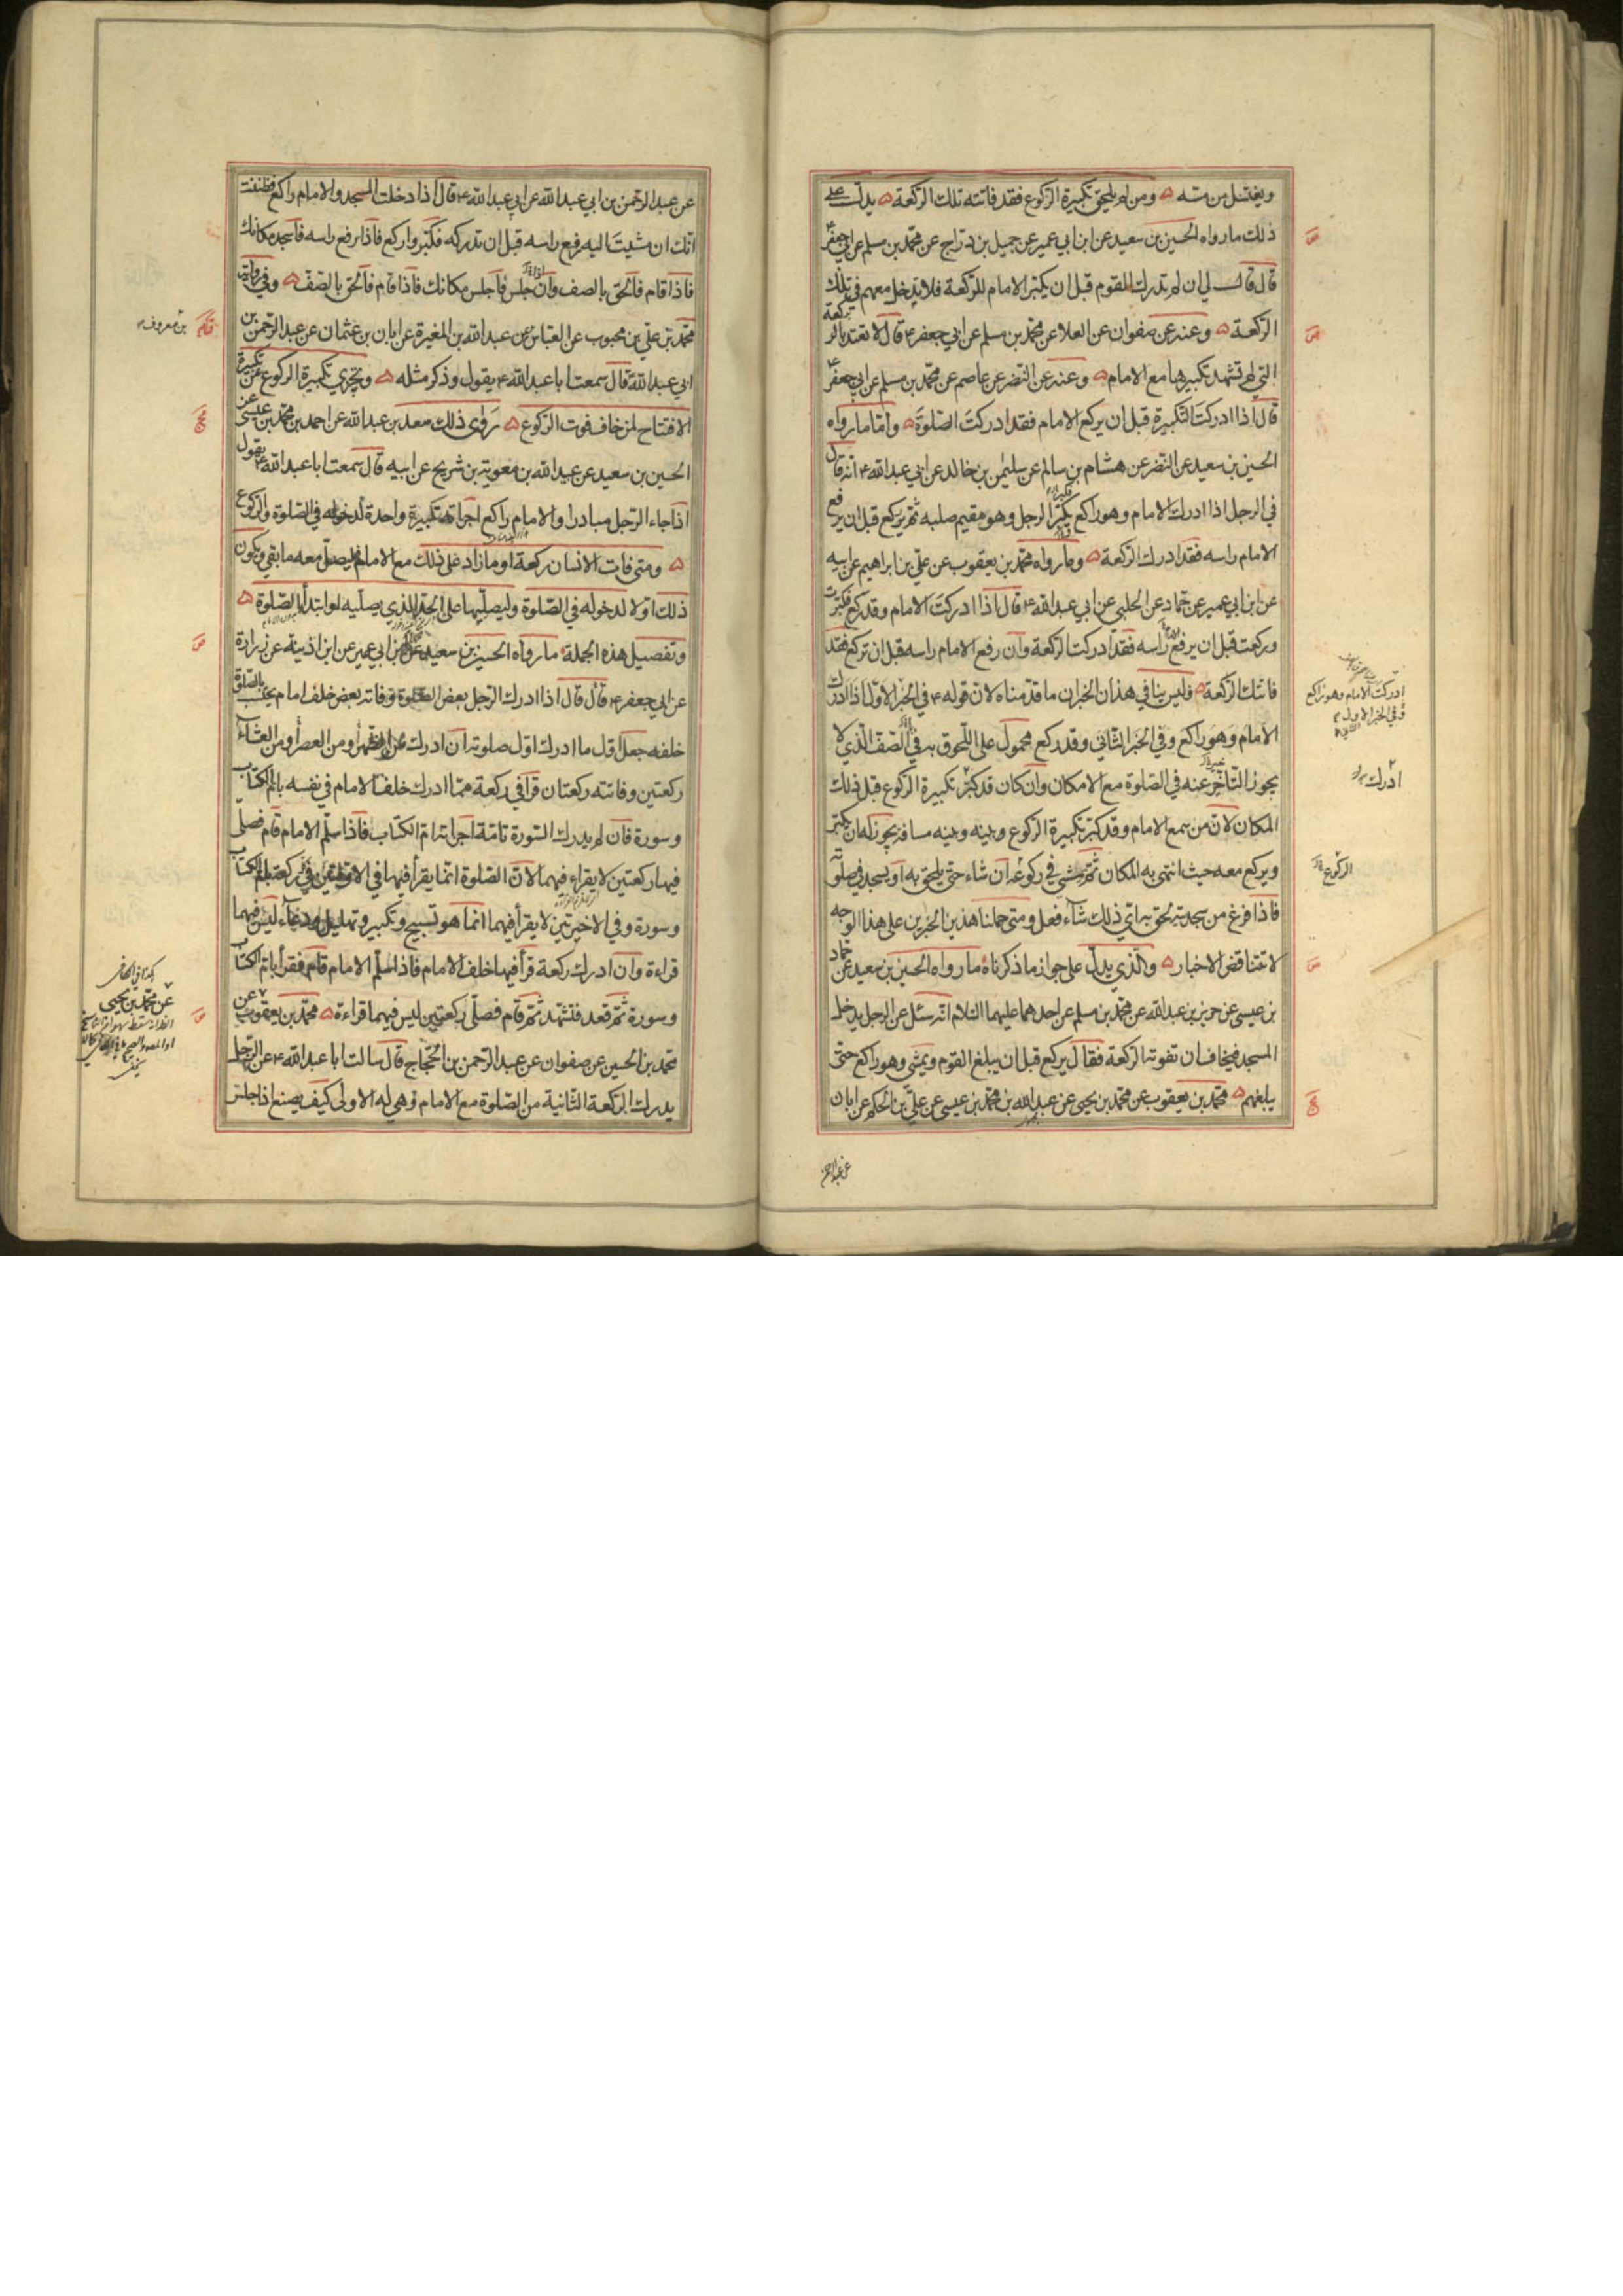 ويغتسل من مسّه ۞ ومن لم يلحق تكبيرة الركوع فقد فاتته تلك الركعة ۞ يدلّ على
ذلك ما رواه الحسين بن سعيد عن ابن ابي عمير عن جميل بن دراج عن محمد بن مسلم عن ابي جعفر ع
قال قال لي ان لم تدرك القوم قبل ان يكبر الامام للركعة فلا تدخل معهم في تلك
الركعة ۞ وعنه عن صفوان عن العلا عن محمد بن مسلم عن ابي جعفر ع قال لا تعتد بالركعة
التي لم تشهد تكبيرها مع الامام ۞ وعنه عن النضر عن عاصم عن محمد بن مسلم عن ابي جعفر ع
قال اذا ادركت التكبيرة قبل ان يركع الامام فقد ادركت الصلوة ۞ واما ما رواه
الحسين بن سعيد عن النضر عن هشام بن سالم عن سليمن بن خالد عن ابي عبد الله ع انه قال
في الرجل اذا ادرك الامام وهو راكع يكبر الرجل وهو مقيم صلبه ثم يركع قبل ان يرفع
الامام راسه فقد ادرك الركعة ۞ وما رواه محمد بن يعقوب عن علي بن ابراهيم عن ابيه
عن ابن ابي عمير عن حماد عن الحلبي عن ابي عبد الله ع قال اذا ادركت الامام وقد ركع فكبرت
وركعت قبل ان يرفع راسه فقد ادركت الركعة وان رفع الامام راسه قبل ان تركع فقد
فاتتك الركعة ۞ فليس ينافي هذان الخبران ما قدمناه لان قوله ع في الخبر الاول اذا ادرك
الامام وهو راكع وفي الخبر الثاني وقد ركع محمول على اللحوق به في الصف الذي لا
يجوز التاخر عنه في الصلوة مع الامكان وان كان قد كبر تكبيرة الركوع قبل ذلك
المكان لان من سمع الامام وقد كبر تكبيرة الركوع وبينه وبينه مسافة يجوز له ان يكبر
ويركع معه حيث انتهى به المكان ثم يمشي في ركوعه ان شاء حتى يلحق به او يسجد في صلوته
فاذا فرغ من سجدتيه لحق به اي ذلك شاء فعل ومتى حملنا هذين الخبرين على هذا الوجه
لا تتناقض الاخبار ۞ والذي يدل على جواز ما ذكرناه ما رواه الحسين بن سعيد عن حماد
بن عيسى عن حريز بن عبد الله عن محمد بن مسلم عن احدهما عليهما السلام انه سئل عن الرجل يدخل
المسجد فيخاف ان تفوته الركعة فقال يركع قبل ان يبلغ القوم ويمشي وهو راكع حتى
يبلغهم ۞ محمد بن يعقوب عن محمد بن يحيى عن عبد الله بن محمد بن عيسى عن علي بن الحكم عن ابان
عن عبد الرحمن
ادركت الامام وهو راكع
وفي الخبر الاول
ادرك
الركوع
عن عبد الرحمن بن ابي عبد الله عن ابي عبد الله ع قال اذا دخلت المسجد والامام راكع فظننت
انك ان مشيت اليه رفع راسه قبل ان تدركه فكبر واركع فاذا رفع راسه فاسجد مكانك
فاذا قام فالحق بالصف وان جلس فاجلس مكانك فاذا قام فالحق بالصف ۞ وفي رواية
محمد بن علي بن محبوب عن العباس عن عبد الله بن المغيرة عن ابان بن عثمان عن عبد الرحمن بن
ابي عبد الله قال سمعت ابا عبد الله ع يقول وذكر مثله ۞ ويجزي تكبيرة الركوع عن تكبيرة
الافتتاح لمن خاف فوت الركوع ۞ روى ذلك سعد بن عبد الله عن احمد بن محمد بن عيسى عن
الحسين بن سعيد عن عبيد الله بن معوية بن شريح عن ابيه قال سمعت ابا عبد الله ع يقول
اذا جاء الرجل مبادرا والامام راكع اجزاته تكبيرة واحدة لدخوله في الصلوة والركوع
۞ ومتى فات الانسان ركعة او ما زاد على ذلك مع الامام فليصل معه ما بقي ويكون
ذلك اولا لدخوله في الصلوة وليصليها على الحد الذي يصليه لو ابتدأ الصلوة ۞
وتفصيل هذه الجملة ما رواه الحسين بن سعيد عن ابن ابي عمير عن ابن اذينة عن زرارة
عن ابي جعفر ع قال قال اذا ادرك الرجل بعض الصلوة وفاته بعض خلف امام يحتسب بالصلوة
خلفه جعل اول ما ادرك اول صلوته ان ادرك من الظهر او من العصر او من العشاء
ركعتين وفاتته ركعتان قرأ في ركعة مما ادرك خلف الامام في نفسه بام الكتاب
وسورة فان لم يدرك السورة تامة اجزاته ام الكتاب فاذا سلم الامام قام فصلى
فيها ركعتين لا يقراء فيهما لان الصلوة انما يقرأ فيها في الاولتين في كل ركعة بام الكتاب
وسورة وفي الاخيرتين لا يقرأ فيهما انما هو تسبيح وتكبير وتهليل ودعاء ليس فيهما
قراءة وان ادرك ركعة قرأ فيها خلف الامام فاذا سلم الامام قام فقرأ بام الكتاب
وسورة ثم قعد فتشهد ثم قام فصلى ركعتين ليس فيهما قراءة ۞ محمد بن يعقوب عن
محمد بن الحسين عن صفوان عن عبد الرحمن بن الحجاج قال سالت ابا عبد الله ع عن الرجل
يدرك الركعة الثانية من الصلوة مع الامام وهي له الاولى كيف يصنع اذا جلس
بن معروف
كذا في الكافي
عن محمد بن يحيى